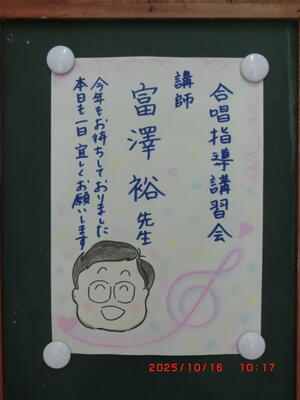 合唱指導講習会
講師
富澤 裕 先生
今年もお待ちしておりました
本日も一日 宜しくお願いします
2025/10/16 10:17